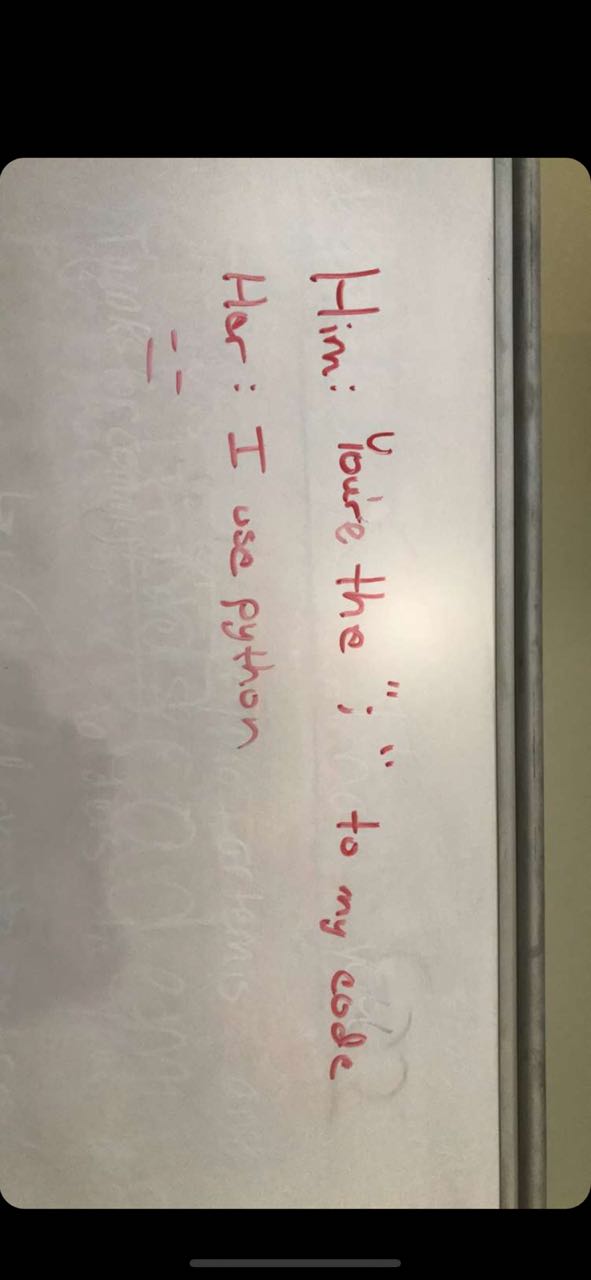 Him: You're the ";" to my code
Her: I use python